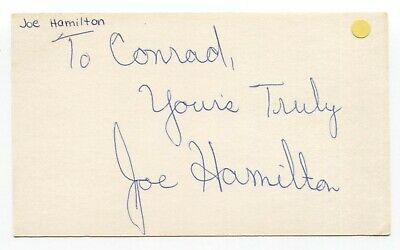 Joe Hamilton
To Conrad,
Yours Truly
Joe Hamilton